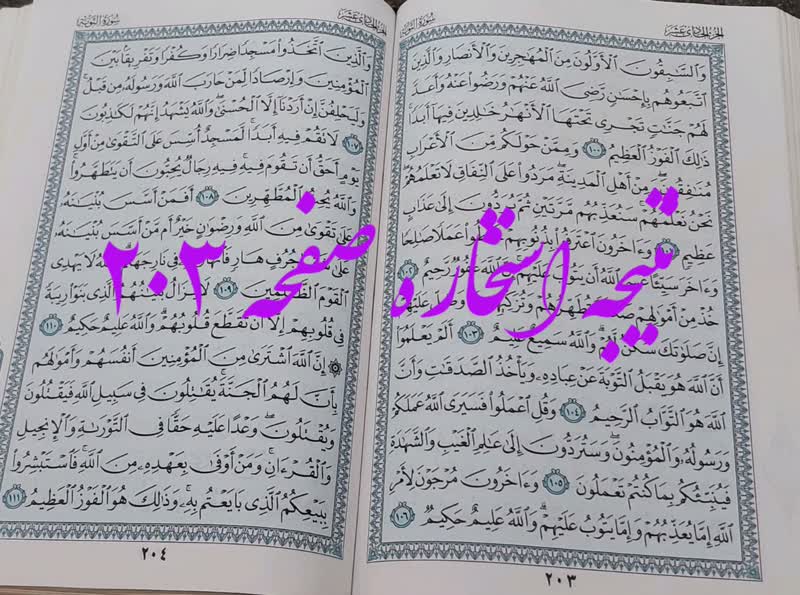 الجزء الحادي عشر
سورة التوبة
وَالسَّٰبِقُونَ الْأَوَّلُونَ مِنَ الْمُهَٰجِرِينَ وَالْأَنصَارِ وَالَّذِينَ
اتَّبَعُوهُم بِإِحْسَٰنٍ رَّضِيَ اللَّهُ عَنْهُمْ وَرَضُوا عَنْهُ وَأَعَدَّ
لَهُمْ جَنَّٰتٍ تَجْرِي تَحْتَهَا الْأَنْهَٰرُ خَٰلِدِينَ فِيهَا أَبَدًا
ذَٰلِكَ الْفَوْزُ الْعَظِيمُ ١٠٠ وَمِمَّنْ حَوْلَكُم مِّنَ الْأَعْرَابِ
مُنَٰفِقُونَ وَمِنْ أَهْلِ الْمَدِينَةِ مَرَدُوا عَلَى النِّفَاقِ لَا تَعْلَمُهُمْ
نَحْنُ نَعْلَمُهُمْ سَنُعَذِّبُهُم مَّرَّتَيْنِ ثُمَّ يُرَدُّونَ إِلَىٰ عَذَابٍ
عَظِيمٍ ١٠١ وَءَاخَرُونَ اعْتَرَفُوا بِذُنُوبِهِمْ عَمَلًا صَٰلِحًا
وَءَاخَرَ سَيِّئًا عَسَى اللَّهُ أَن يَتُوبَ عَلَيْهِمْ إِنَّ اللَّهَ غَفُورٌ رَّحِيمٌ ١٠٢
خُذْ مِنْ أَمْوَٰلِهِمْ تُطَهِّرُهُمْ وَتُزَكِّيهِم وَصَلِّ عَلَيْهِمْ
إِنَّ صَلَوٰتَكَ سَكَنٌ لَّهُمْ وَاللَّهُ سَمِيعٌ عَلِيمٌ ١٠٣ أَلَمْ يَعْلَمُوا
أَنَّ اللَّهَ هُوَ يَقْبَلُ التَّوْبَةَ عَنْ عِبَادِهِ وَيَأْخُذُ الصَّدَقَٰتِ وَأَنَّ
اللَّهَ هُوَ التَّوَّابُ الرَّحِيمُ ١٠٤ وَقُلِ اعْمَلُوا فَسَيَرَى اللَّهُ عَمَلَكُمْ
وَرَسُولُهُ وَالْمُؤْمِنُونَ وَسَتُرَدُّونَ إِلَىٰ عَٰلِمِ الْغَيْبِ وَالشَّهَٰدَةِ
فَيُنَبِّئُكُم بِمَا كُنتُمْ تَعْمَلُونَ ١٠٥ وَءَاخَرُونَ مُرْجَوْنَ لِأَمْرِ
اللَّهِ إِمَّا يُعَذِّبُهُمْ وَإِمَّا يَتُوبُ عَلَيْهِمْ وَاللَّهُ عَلِيمٌ حَكِيمٌ ١٠٦
٢٠٣
الجزء الحادي عشر
سورة التوبة
وَالَّذِينَ اتَّخَذُوا مَسْجِدًا ضِرَارًا وَكُفْرًا وَتَفْرِيقًا بَيْنَ
الْمُؤْمِنِينَ وَإِرْصَادًا لِّمَنْ حَارَبَ اللَّهَ وَرَسُولَهُ مِن قَبْلُ
وَلَيَحْلِفُنَّ إِنْ أَرَدْنَا إِلَّا الْحُسْنَىٰ وَاللَّهُ يَشْهَدُ إِنَّهُمْ لَكَٰذِبُونَ
١٠٧ لَا تَقُمْ فِيهِ أَبَدًا لَّمَسْجِدٌ أُسِّسَ عَلَى التَّقْوَىٰ مِنْ أَوَّلِ
يَوْمٍ أَحَقُّ أَن تَقُومَ فِيهِ فِيهِ رِجَالٌ يُحِبُّونَ أَن يَتَطَهَّرُوا
وَاللَّهُ يُحِبُّ الْمُطَّهِّرِينَ ١٠٨ أَفَمَنْ أَسَّسَ بُنْيَٰنَهُ
عَلَىٰ تَقْوَىٰ مِنَ اللَّهِ وَرِضْوَٰنٍ خَيْرٌ أَم مَّنْ أَسَّسَ بُنْيَٰنَهُ
عَلَىٰ جُرُفٍ هَارٍ فِي نَارِ جَهَنَّمَ لَا يَهْدِي
الْقَوْمَ الظَّٰلِمِينَ ١٠٩ لَا يَزَالُ بُنْيَٰنُهُمُ الَّذِي بَنَوْا رِيبَةً
فِي قُلُوبِهِمْ إِلَّا أَن تَقَطَّعَ قُلُوبُهُمْ وَاللَّهُ عَلِيمٌ حَكِيمٌ ١١٠
۞ إِنَّ اللَّهَ اشْتَرَىٰ مِنَ الْمُؤْمِنِينَ أَنفُسَهُمْ وَأَمْوَٰلَهُم
بِأَنَّ لَهُمُ الْجَنَّةَ يُقَٰتِلُونَ فِي سَبِيلِ اللَّهِ فَيَقْتُلُونَ
وَيُقْتَلُونَ وَعْدًا عَلَيْهِ حَقًّا فِي التَّوْرَىٰةِ وَالْإِنجِيلِ
وَالْقُرْءَانِ وَمَنْ أَوْفَىٰ بِعَهْدِهِ مِنَ اللَّهِ فَاسْتَبْشِرُوا
بِبَيْعِكُمُ الَّذِي بَايَعْتُم بِهِ وَذَٰلِكَ هُوَ الْفَوْزُ الْعَظِيمُ ١١١
٢٠٤
نتیجه استخاره صفحه ۲۰۳